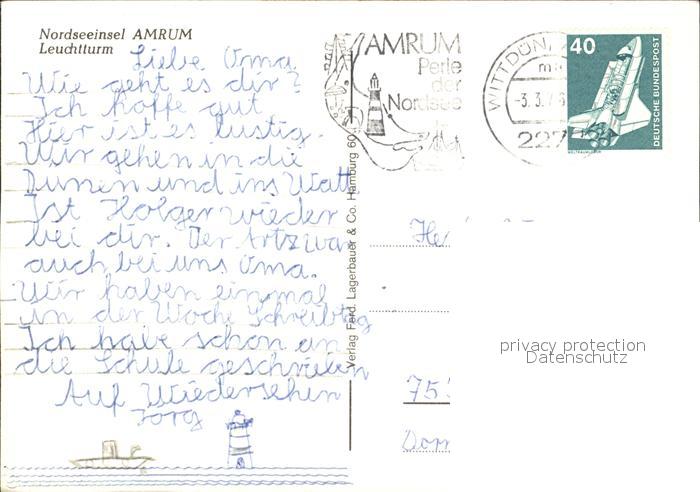 Nordseeinsel AMRUM
Leuchtturm
Liebe Oma
Wie geht es dir?
Ich hoffe gut
Hier ist es lustig.
Wir gehen in die
Dünen und ins Watt
Ist Holger wieder
bei dir. Der Artz war
auch bei uns Oma.
Wir haben einmal
in der Woche Schreibtag
Ich habe schon an
die Schule geschrieben
Auf Wiedersehen
Jörg
Verlag Ferd. Lagerbauer & Co. Hamburg 60
AMRUM
Perle
der
Nordsee
WITTDÜN
-3.3.
227
40
DEUTSCHE BUNDESPOST
He
75
Dorn
privacy protection
Datenschutz